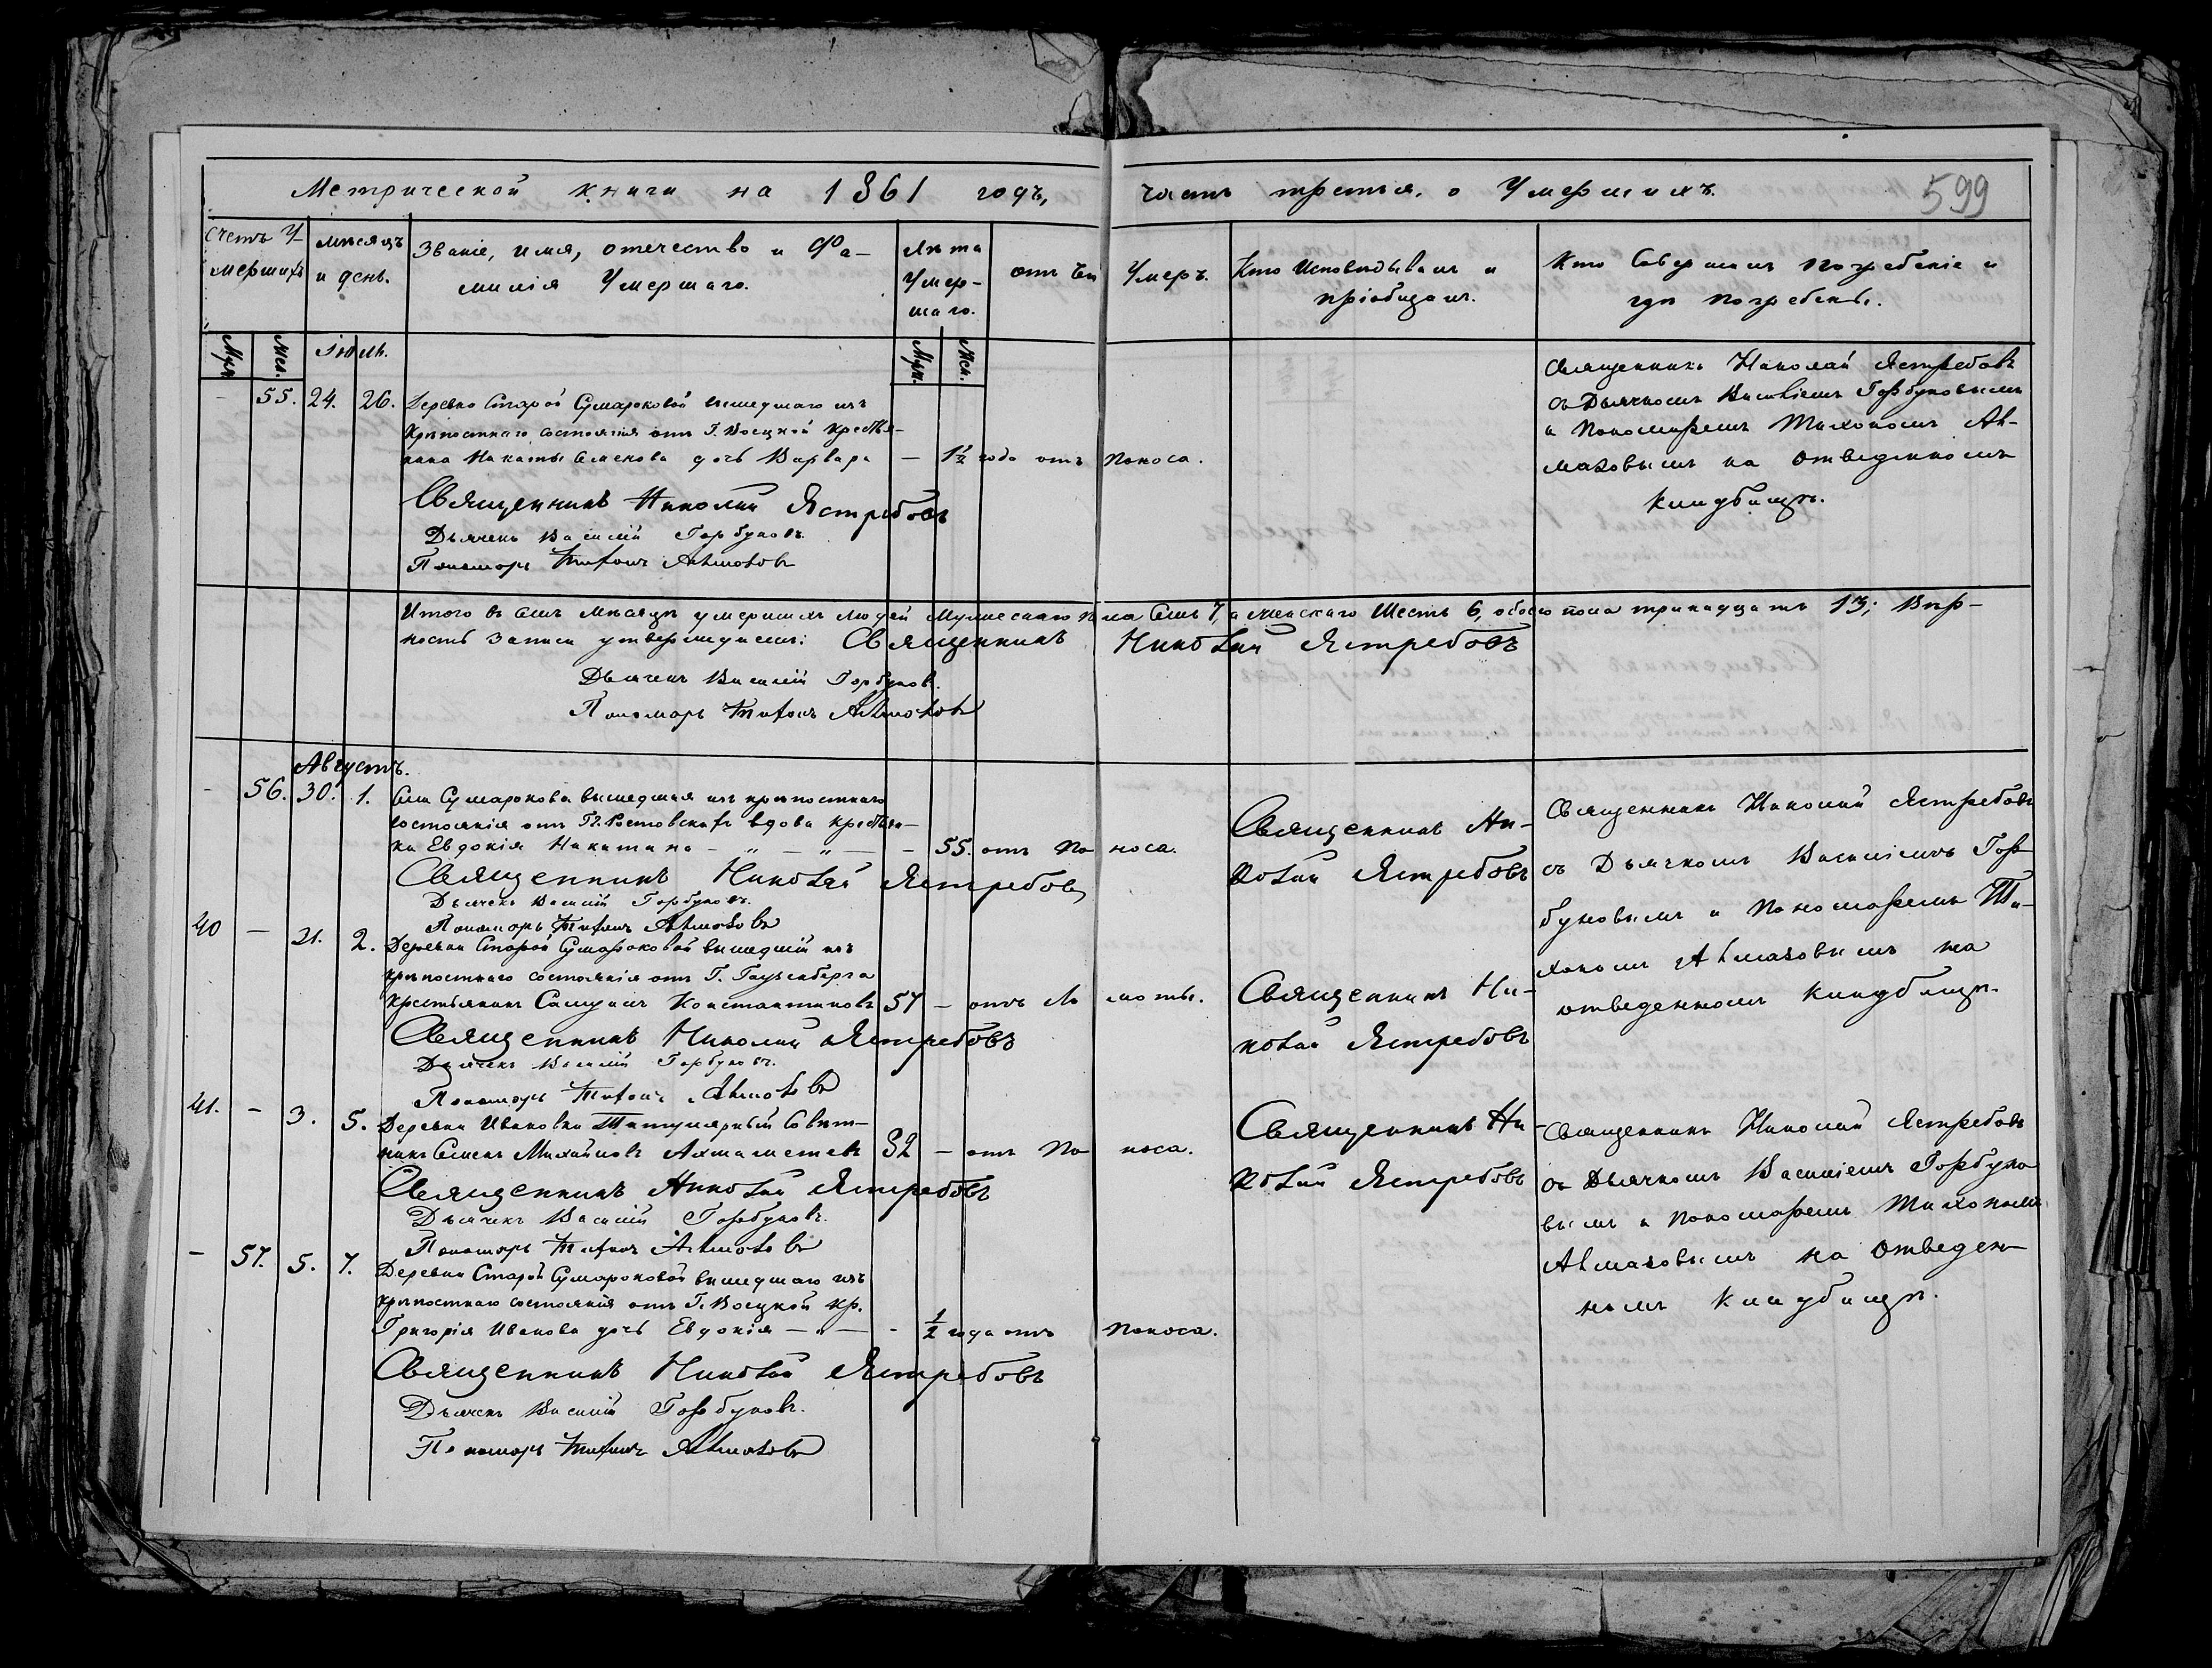 Метрической книги на 1861 годъ, часть третья, о Умершихъ.
599
Счетъ У-
мершихъ
Мѣсяцъ
и день.
Званіе, имя, отечество и Фа-
милія Умершаго.
Лѣта
Умер-
шаго.
отъ чего Умеръ.
Кто Исповѣдывалъ и
пріобщалъ.
Кто Совершалъ погребеніе и
гдѣ погребены.
Муж.
Жен.
Іюль.
Муж.
Жен.
– 55. 24. 26. Деревно Старой Сумароковой вышедшаго изъ
крѣпостнаго состоянія отъ Г. Восцкой крестья-
нина Никиты Семенова дочь Варвара – 1½ года отъ поноса.
Священникъ Николай Ястребовъ
Дьячекъ Василій Горбуновъ.
Пономарь Тихонъ Алмазовъ
Священникъ Николай Ястребовъ
съ Дьячкомъ Василіемъ Горбуновымъ
и Пономаремъ Тихономъ Ал-
мазовымъ на отведенномъ
кладбищѣ.
Итого въ семъ мѣсяцѣ умершихъ людей Мужескаго пола Семь 7, а женскаго Шесть 6, обоего пола тринадцать 13; Вѣр-
ность записи утверждаемъ: Священникъ Николай Ястребовъ
Дьячекъ Василій Горбуновъ.
Пономарь Тихонъ Алмазовъ
Августъ.
– 56. 30. 1. Села Сумарокова вышедшая изъ крѣпостнаго
состоянія отъ Гг. Ростовскихъ вдова крестьян-
ка Евдокія Никитина – „ – „ – – 55. отъ поноса.
Священникъ Николай Ястребовъ
Дьячекъ Василій Горбуновъ.
Пономарь Тихонъ Алмазовъ
Священникъ Ни-
колай Ястребовъ
Священникъ Николай Ястребовъ
съ Дьячкомъ Василіемъ Гор-
буновымъ и Пономаремъ Ти-
хономъ Алмазовымъ на
отведенномъ кладбищѣ.
40 – 31. 2. Деревни Старой Сумароковой вышедшій изъ
крѣпостнаго состоянія отъ Г. Гаузенберга
крестьянинъ Самуилъ Константиновъ 57 – отъ ломоты.
Священникъ Николай Ястребовъ
Дьячекъ Василій Горбуновъ.
Пономарь Тихонъ Алмазовъ
Священникъ Ни-
колай Ястребовъ
41. – 3. 5. Деревни Ивановки Титулярный Совѣт-
никъ Семенъ Михайловъ Ахшаметевъ 32 – отъ поноса.
Священникъ Николай Ястребовъ
Дьячекъ Василій Горбуновъ.
Пономарь Тихонъ Алмазовъ
Священникъ Ни-
колай Ястребовъ
Священникъ Николай Ястребовъ
съ Дьячкомъ Василіемъ Горбуно
вымъ и Пономаремъ Тихономъ
Алмазовымъ на отведен-
номъ кладбищѣ.
– 57. 5. 7. Деревни Старой Сумароковой вышедшаго изъ
крѣпостнаго состоянія отъ Г. Восцкой кр.
Григорія Иванова дочь Евдокія – „ – - ½ года отъ поноса.
Священникъ Николай Ястребовъ
Дьячекъ Василій Горбуновъ.
Пономарь Тихонъ Алмазовъ